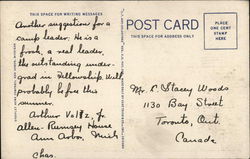 THIS SPACE FOR WRITING MESSAGES
Another suggestion for a
camp leader. He is a
frosh, a real leader,
the outstanding under-
grad in Fellowship. Will
probably be free this
summer.
Arthur Volbz, Jr.
Allen-Rumsey House
Ann Arbor, Mich.
Chas.
POST CARD
THIS SPACE FOR ADDRESS ONLY
PLACE
ONE CENT
STAMP
HERE
Mr. C. Stacey Woods
1130 Bay Street
Toronto, Ont.
Canada